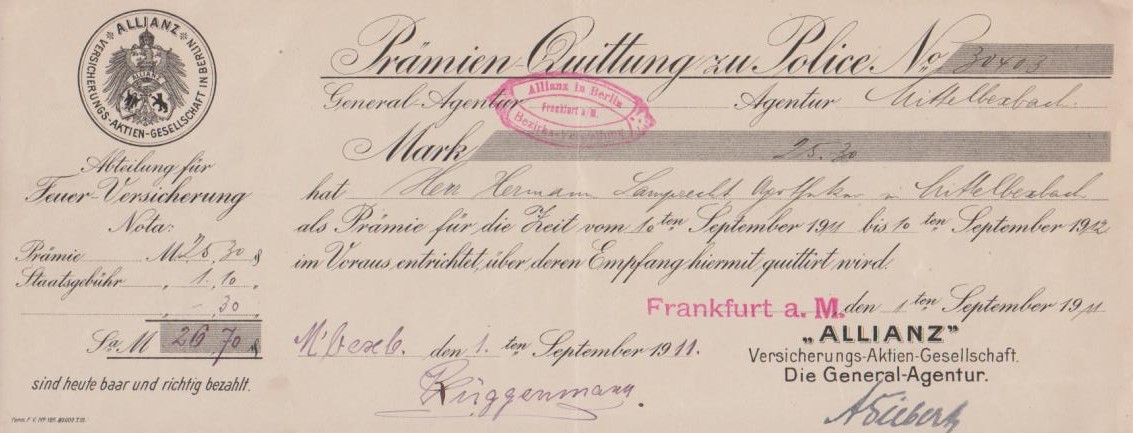 ALLIANZ
VERSICHERUNGS-AKTIEN-GESELLSCHAFT IN BERLIN
ALLIANZ
Abteilung für
Feuer-Versicherung
Nota:
Prämie M 25.30 ₰
Staatsgebühr „ 1.10 „
-.30
Sa M 26 70 ₰
sind heute baar und richtig bezahlt.
Prämien-Quittung zu Police No 30403
General-Agentur Agentur Mittelbexbach.
Allianz in Berlin
Frankfurt a/M.
Mark 25.30
hat Herr Hermann Lamprecht Apotheker in Mittelbexbach
als Prämie für die Zeit vom 10ten September 1911 bis 10ten September 1912
im Voraus entrichtet, über deren Empfang hiermit quittirt wird.
Frankfurt a. M. den 1ten September 1911
M'bexb. den 1. ten September 1911.
Rüggenmann.
„ALLIANZ"
Versicherungs-Aktien-Gesellschaft.
Die General-Agentur.